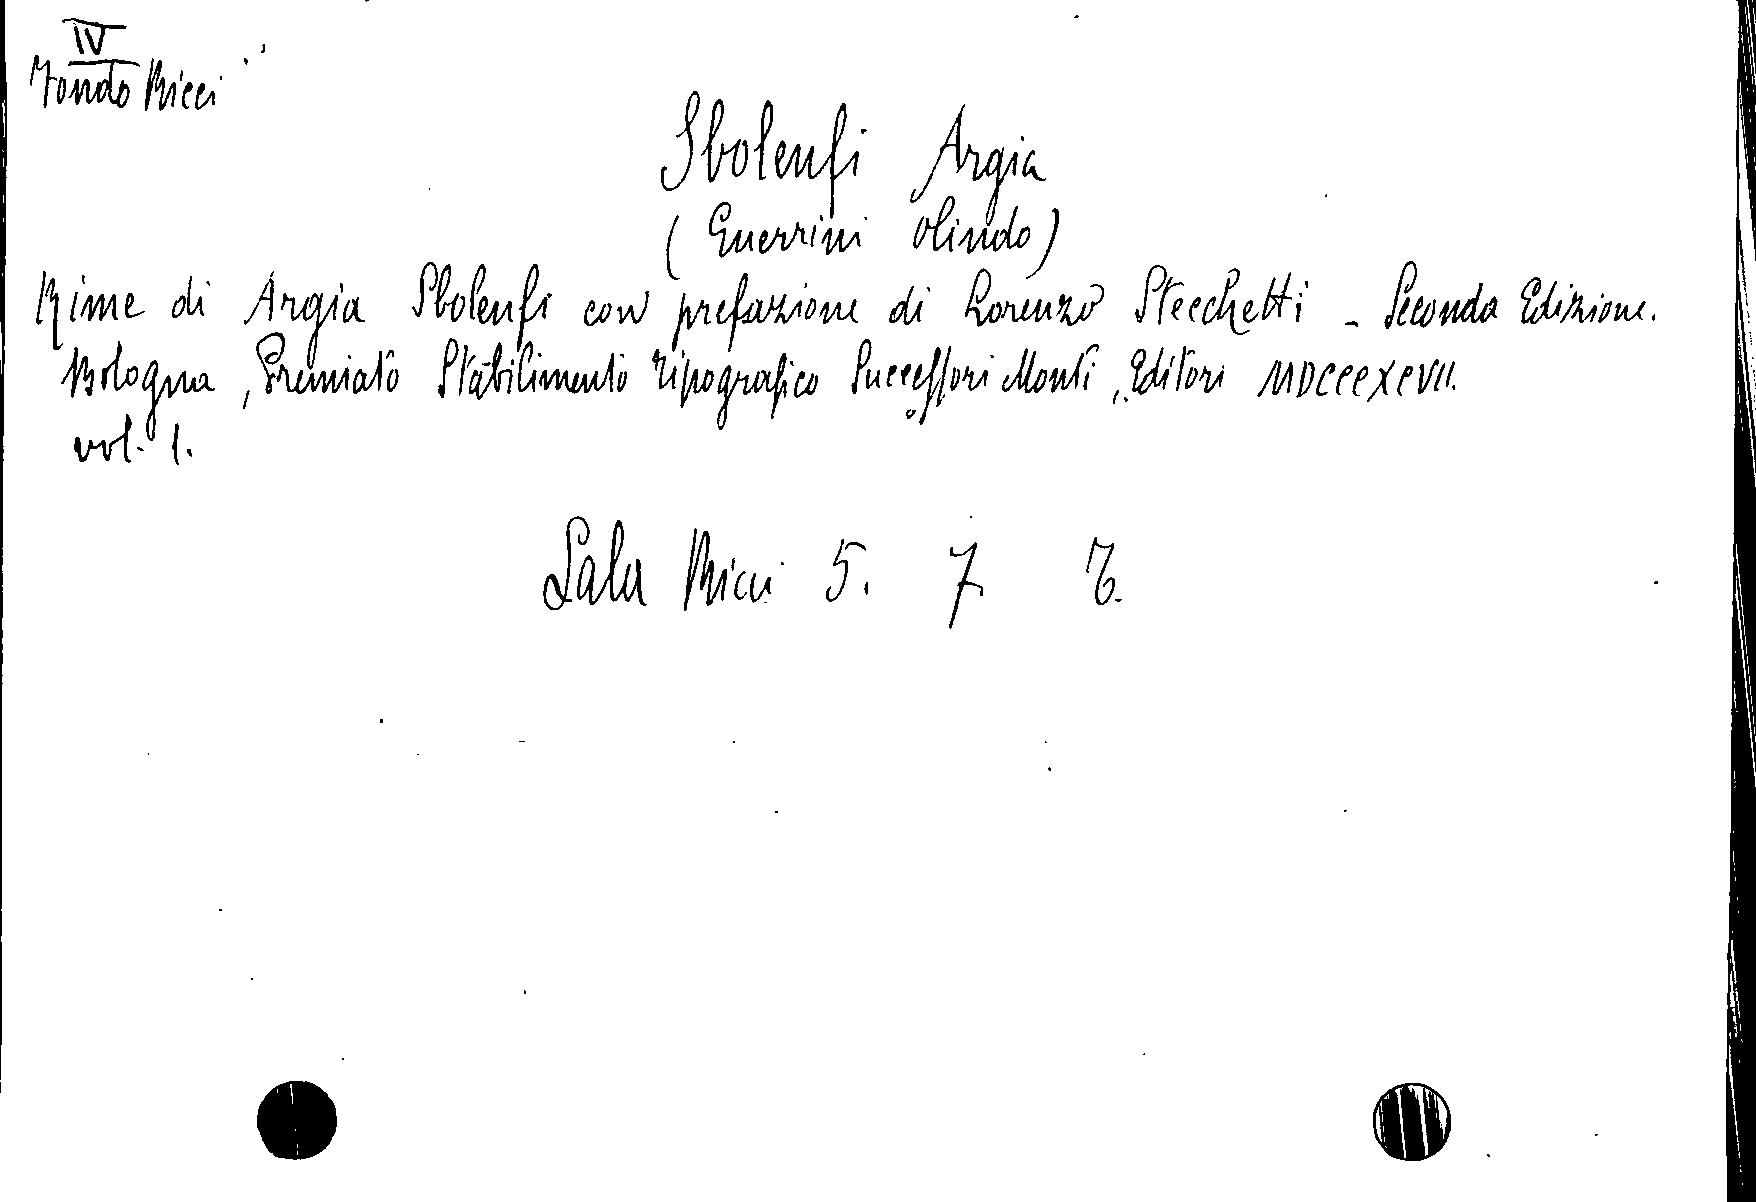 IV
Fondo Ricci
Sbolenfi Argia
(Guerrini Olindo)
Rime di Argia Sbolenfi con prefazione di Lorenzo Stecchetti - Seconda Edizione.
Bologna, Premiato Stabilimento Tipografico Successori Monti, Editori MDCCCXCVII.
vol. 1.
Sala Ricci 5. 7